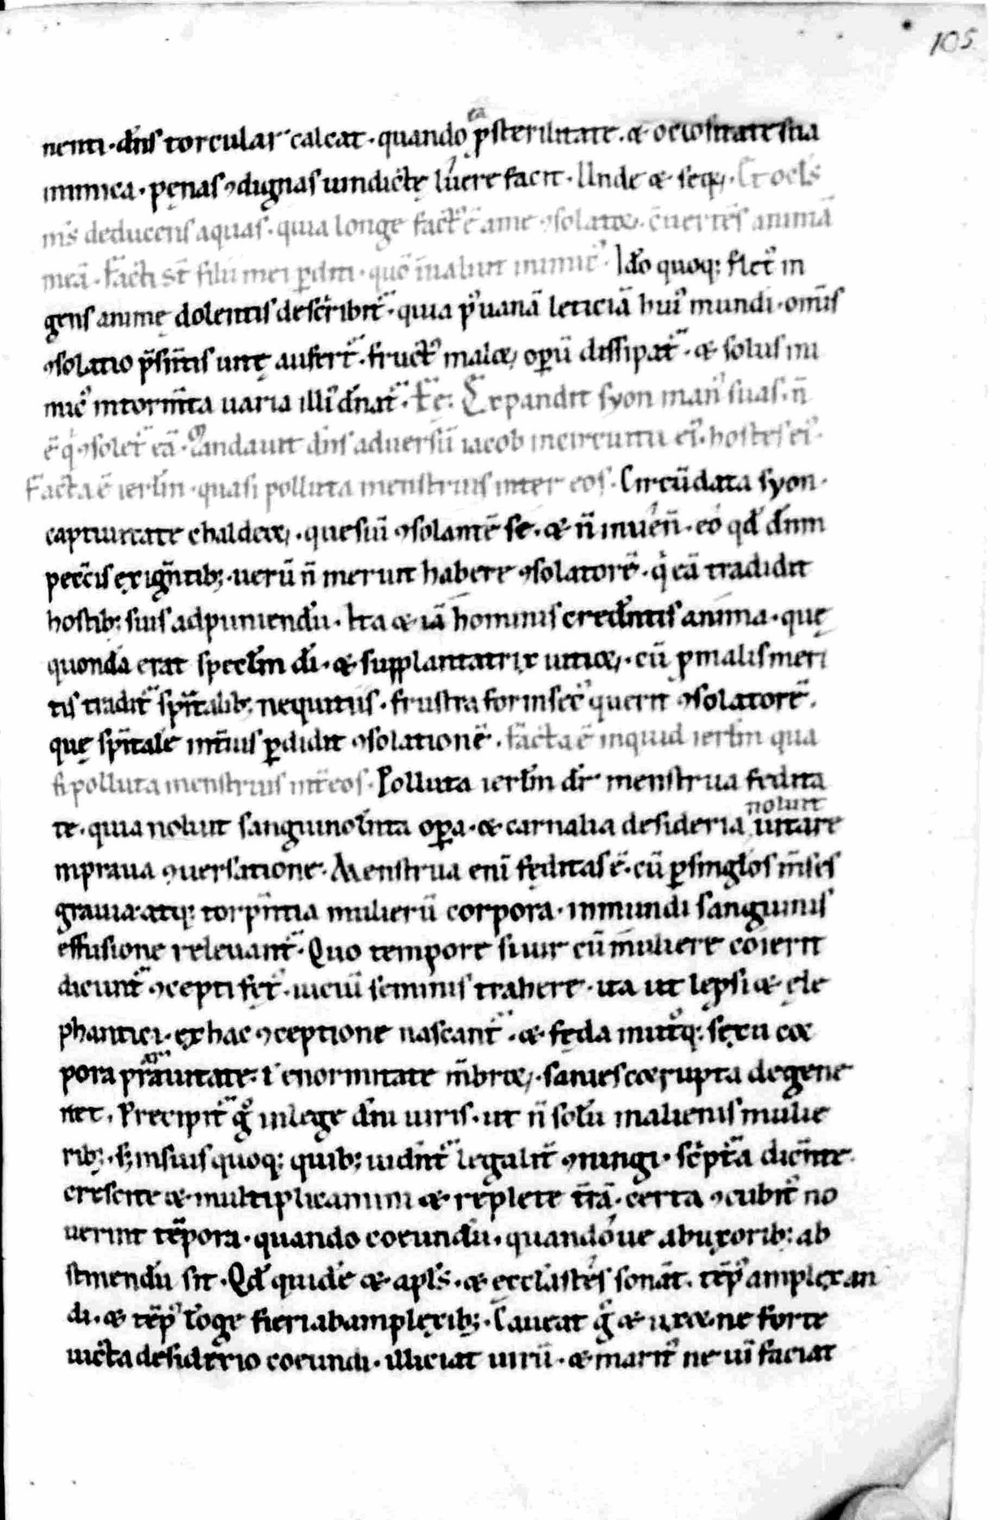 105
nenti · dn̄s torcular calcat · quando ea p̄ sterilitate · & ociositate sua
inimica · pęnas ꝯdignas uindictę luere facit · Unde & seq̄ · Et ocl̄s
ms̄ deducens aquas · quia longe fact᾽ ē a me ꝯsolator · cūertēs animā
meā · Facti st̄ filii mei ꝑditi · quō inualuit inimic᾽ · Ido quoq; flet᾽ in
gens animę dolentis describit᾽ · quia ꝓ uana leticia hui᾽ mundi · om̄is
ꝯsolatio p̄sentis uitę aufert᾽ · fruct᾽ malor̄ oꝑū dissipat᾽ · & solus ini
mic᾽ in torm̄ta uaria illi dn̄at᾽ · Fe · Expandit syon man᾽ suas · ñ
ē q̇ ꝯsolet᾽ eā · Mandauit dn̄s aduersū iacob in circuitu ei᾽ · hostes ei᾽ ·
Facta ē ierlm̄ · quasi polluta menstruis inter eos · Circūdata syon ·
captiuitate chaldeor̄ · quesiū ꝯsolantē se · & ñ inuen̄ · eo qd̄ dn̄m
peccīs exigntib; · uerū ñ meruit habere ꝯsolatorē · q̇ eā tradidit
hostib; suis ad puniendū · Ita & iā hominis credn̄tis anima · quę
quondā erat specl̄m dī · & supplantatrix uitior̄ · cū ꝓ malis meri
tis tradit᾽ spn̄talib; nequitiis · frustra forinsec᾽ querit ꝯsolatorē ·
quę spn̄tale int̄ius ꝑdidit ꝯsolationē · Facta ē inquid ierlm̄ qua
si polluta menstruis int̄ eos · Polluta ierlm̄ dr̄ menstrua fedita
te · quia noluit sanguinoln̄ta oꝑa · & carnalia desideria nolunt uitare
in praua ꝯuersatione · Menstrua enī fęditas ē · cū ꝑ singlos m̄ses
grauia atq; torpn̄tia mulierū corpora · inmundi sanguinis
effusione releuant᾽ · Quo tempore si uir cū muliere coierit
dicunt᾽ ꝯcepti fet᾽ · uiciū seminis trahere · ita ut lepsi & ele
phantici · ex hac ꝯceptione nascant᾽ · & fęda in utroq; sexu cor
pora prauitate · ł enormitate m̄bror̄ · sanies corrupta degene
net · Precipit᾽ g᾽ in lege dn̄i uiris · ut ñ solū in alienis mulie
rib; · s; in suis quoq; quib; uident᾽ legalit᾽ ꝯiungi · script̄a dicn̄te ·
crescite & multiplicamini & replete t̄rā · certa ꝯcubit᾽ no
uerint tēpora · quando coeundū · quandoue ab uxorib; ab
stinendū sit · Qd̄ quidē & apls̄ · & eccl̄astes sonāt · tēp᾽ amplexan
di · & tēp᾽ loge fieri ab amplexib; · Caueat g᾽ & uxor · ne forte
uicta desiderio coeundi · illiciat uirū · & marit᾽ ne uī faciat